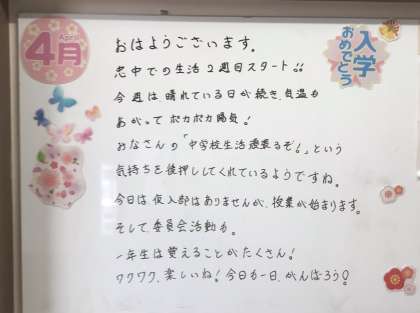 April
4月
入学
おめでとう
おはようございます。
志中での生活2週目スタート!!
今週は晴れている日が続き、気温も
あがってポカポカ陽気!
みなさんの「中学校生活頑張るぞ!」という
気持ちを後押ししてくれているようですね。
今日は仮入部はありませんが、授業が始まります。
そして、委員会活動も。
一年生は覚えることがたくさん!
ワクワク、楽しいね!今日も一日、がんばろう!